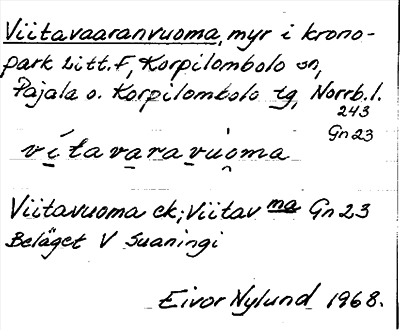 Viitavaaranvuoma, myr i krono-
park Litt. F, Korpilombolo sn,
Pajala o. Korpilombolo tg, Norrb. l.
243
Gn 23
vítavaravuoma
Viitavuoma ek; Viitav ma Gn 23
Beläget V Suaningi
Eivor Nylund 1968.